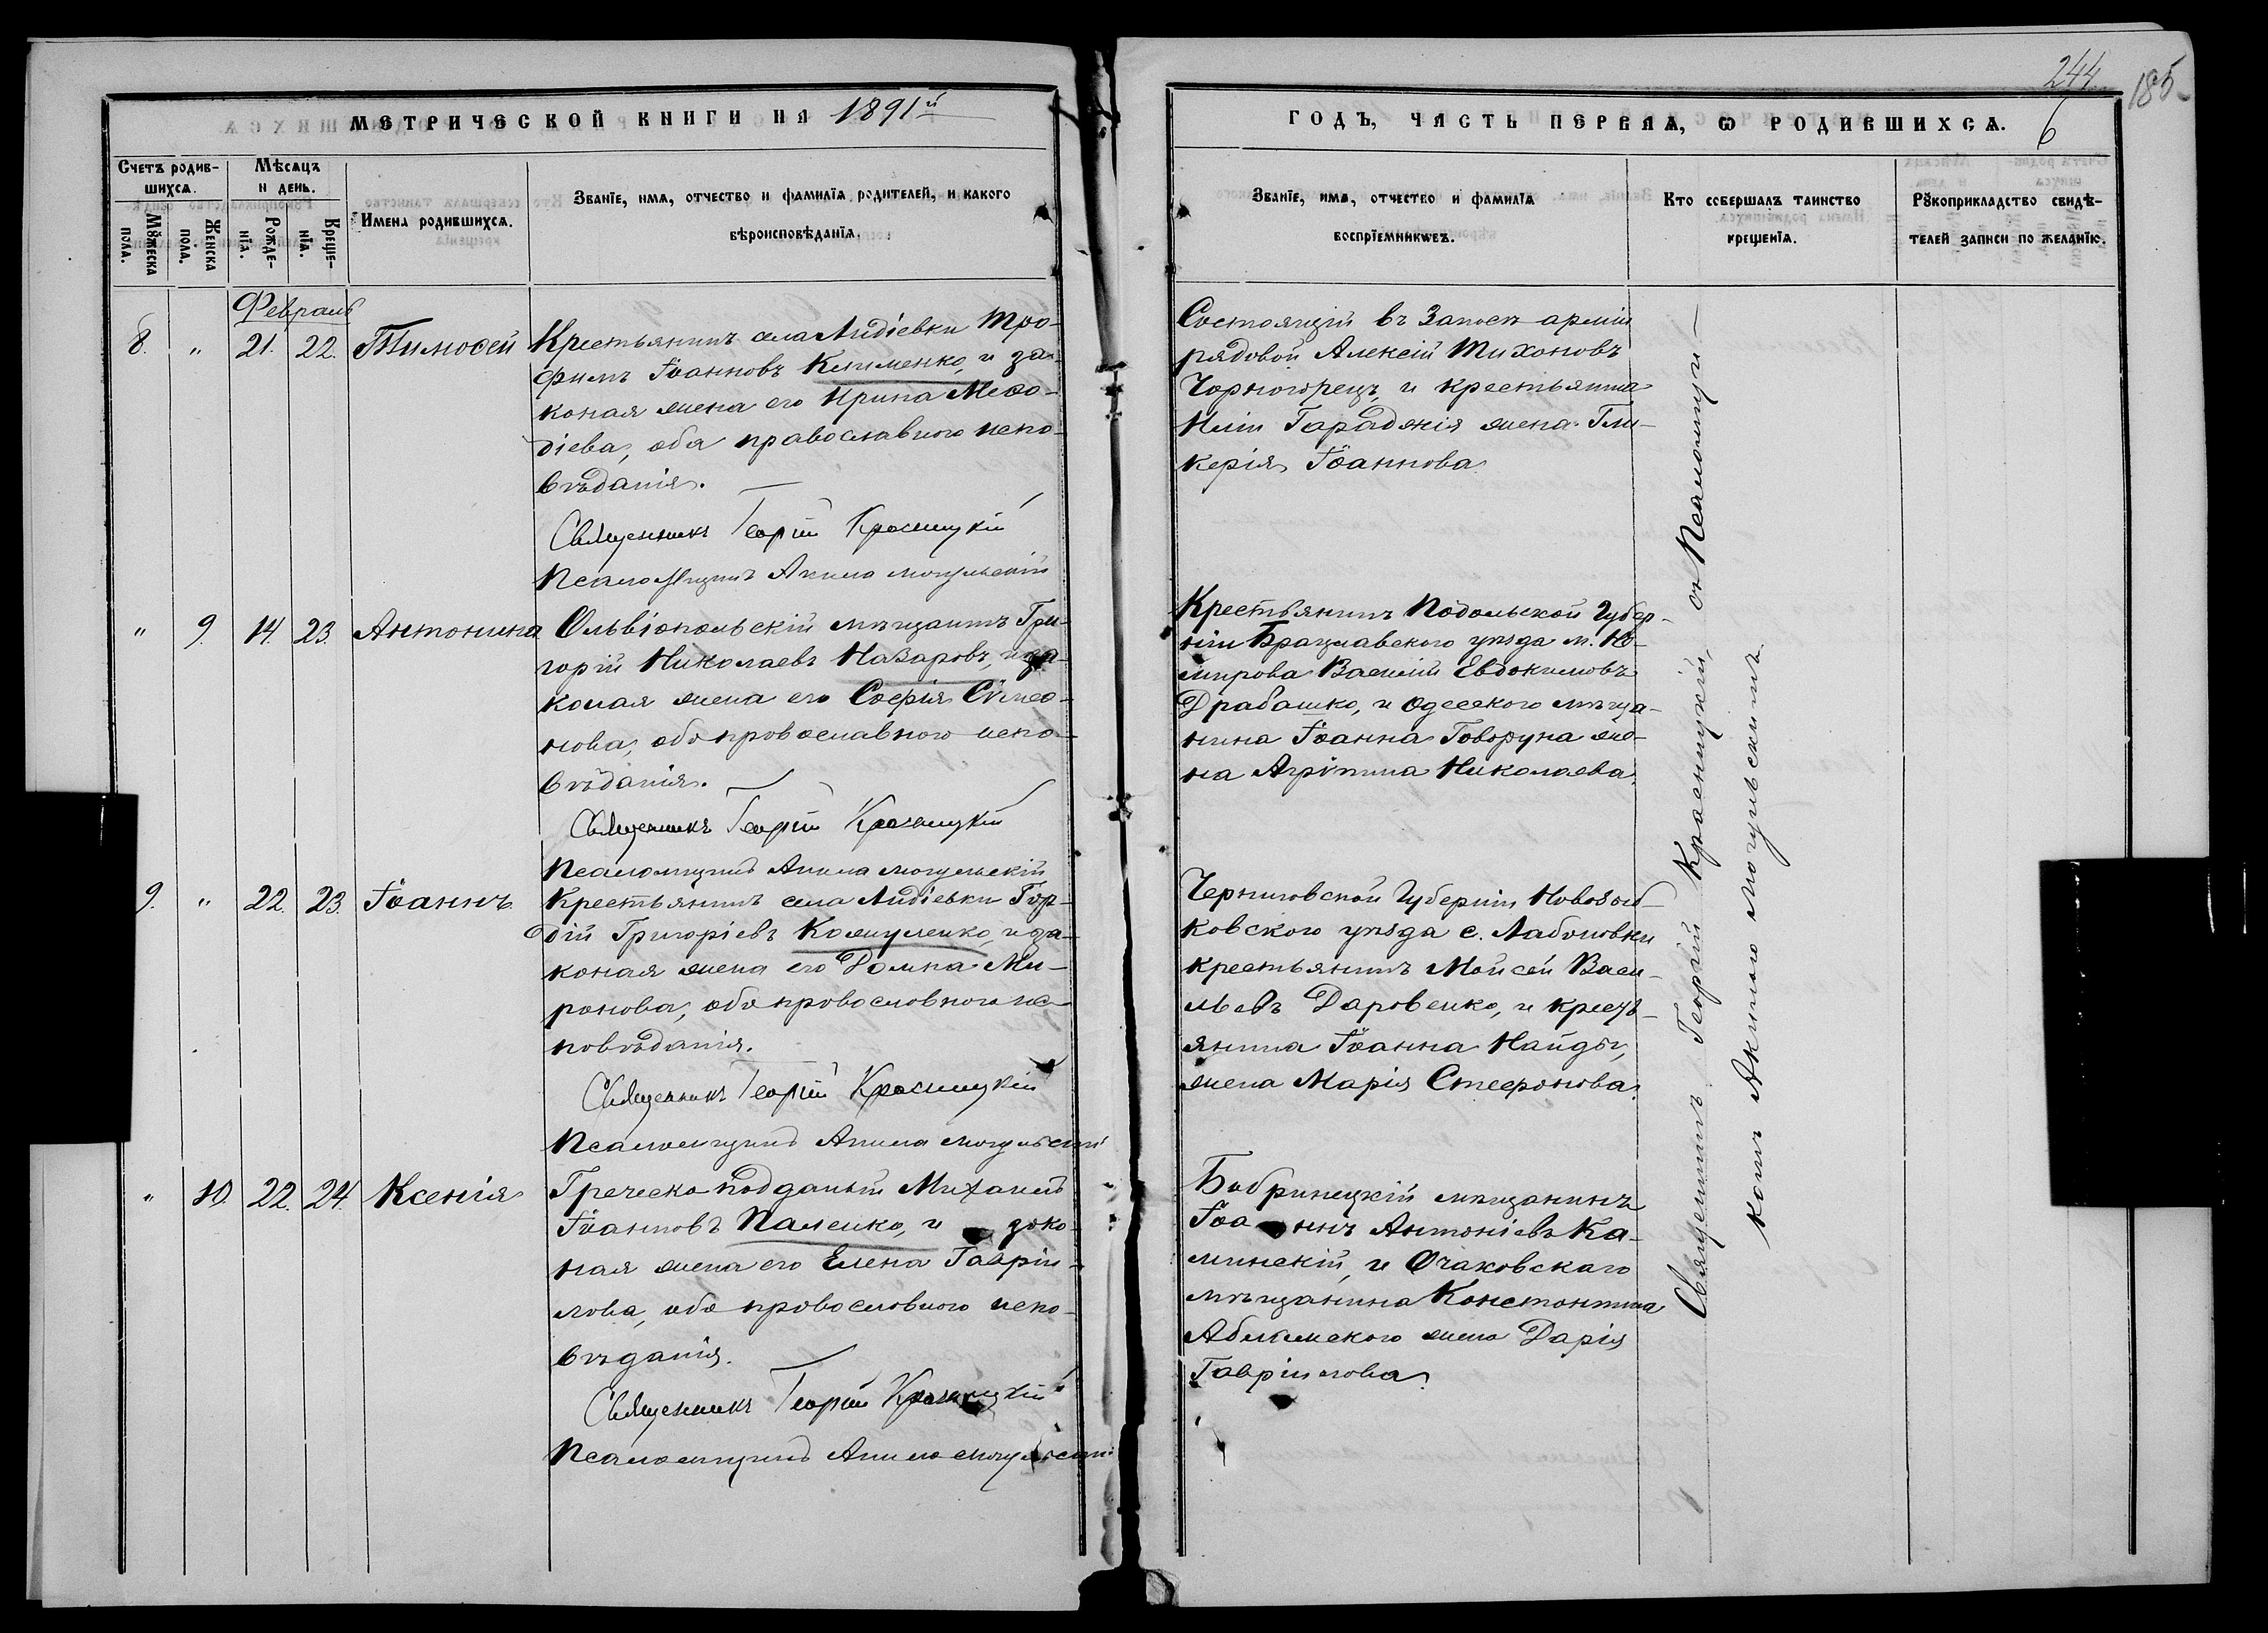 244
185
6
МЕТРИЧЕСКОЙ КНИГИ НА 1891й
ГОДЪ, ЧАСТЬ ПЕРВАЯ, Ѡ РОДИВШИХСЯ.
Счетъ родив-
шихся.
Мѣсяцъ
и день.
Мꙋжеска
пола.
Женска
пола.
Рожде-
нїя.
Креще-
нїя.
Имена родившихся.
Званїе, имя, отчество и фамилїя родителей, и какого
вѣроисповѣданїя.
Званїе, имя, отчество и фамилїя
воспрїемникѡвъ.
Кто совершалъ таинство
крещенїя.
Рꙋкоприкладство свидѣ-
телей записи по желанїю.
Февраль
8. " 21. 22. Тимоѳей
Крестьянинъ села Лидіевки Тро-
фимъ Іоанновъ Клименко, и за-
коная жена его Ирина Меѳо-
діева, оба православного испо-
вѣданія.
Священникъ Георгій Красницкій
Псаломщикъ Акила Могульскій
Состоящій въ Запасѣ арміи
рядовой Алексій Тихоновъ
Чорногорецъ, и крестьянина
Иліи Гараджія жена Гли-
керія Іоаннова
" 9. 14. 23. Антонина
Ольвіопольскій мѣщанинъ Гри-
горій Николаевъ Назаровъ, и за-
коная жена его Софія Сімео-
нова, оба православного испо-
вѣданія.
Священникъ Георгій Красницкій
Псаломщикъ Акила Могульскій
Крестьянинъ Подольской Губер-
ніи Брацлавского уѣзда м. Не-
мирова Василій Евдокимовъ
Драбашко, и Одесского мѣща-
нина Іоанна Говоруна же-
на Агріпина Николаева.
9. " 22. 23. Іоаннъ
Крестьянинъ села Лидіевки Гор-
дій Григоріевъ Кожуленко, и за-
коная жена его Домна Ми-
ронова, оба православного ис-
повѣданія.
Священникъ Георгій Красницкій
Псаломщикъ Акила Могульскій
Черниговской Губерніи Новозыб-
ковского уѣзда с.
крестьянинъ Моисей Васи-
льевъ Даровенко, и кресть-
янина Іоанна Найды,
жена Марія Стефанова.
" 10. 22. 24. Ксенія
Греческо-подданый Михаилъ
Іоанновъ Паленко, и зако-
ная жена его Елена Гаврии-
лова, оба православного испо-
вѣданія.
Священникъ Георгій Красницкій
Псаломщикъ Акила Могульскій
Бобринецкій мѣщанинъ
Іоаннъ Антоніевъ Ка-
минскій, и Очаковскаго
мѣщанина Константина
жена Дарія
Гавріилова.
Священникъ Георгій Красницкій, съ Псаломщи-
комъ Акилою Могульскимъ.